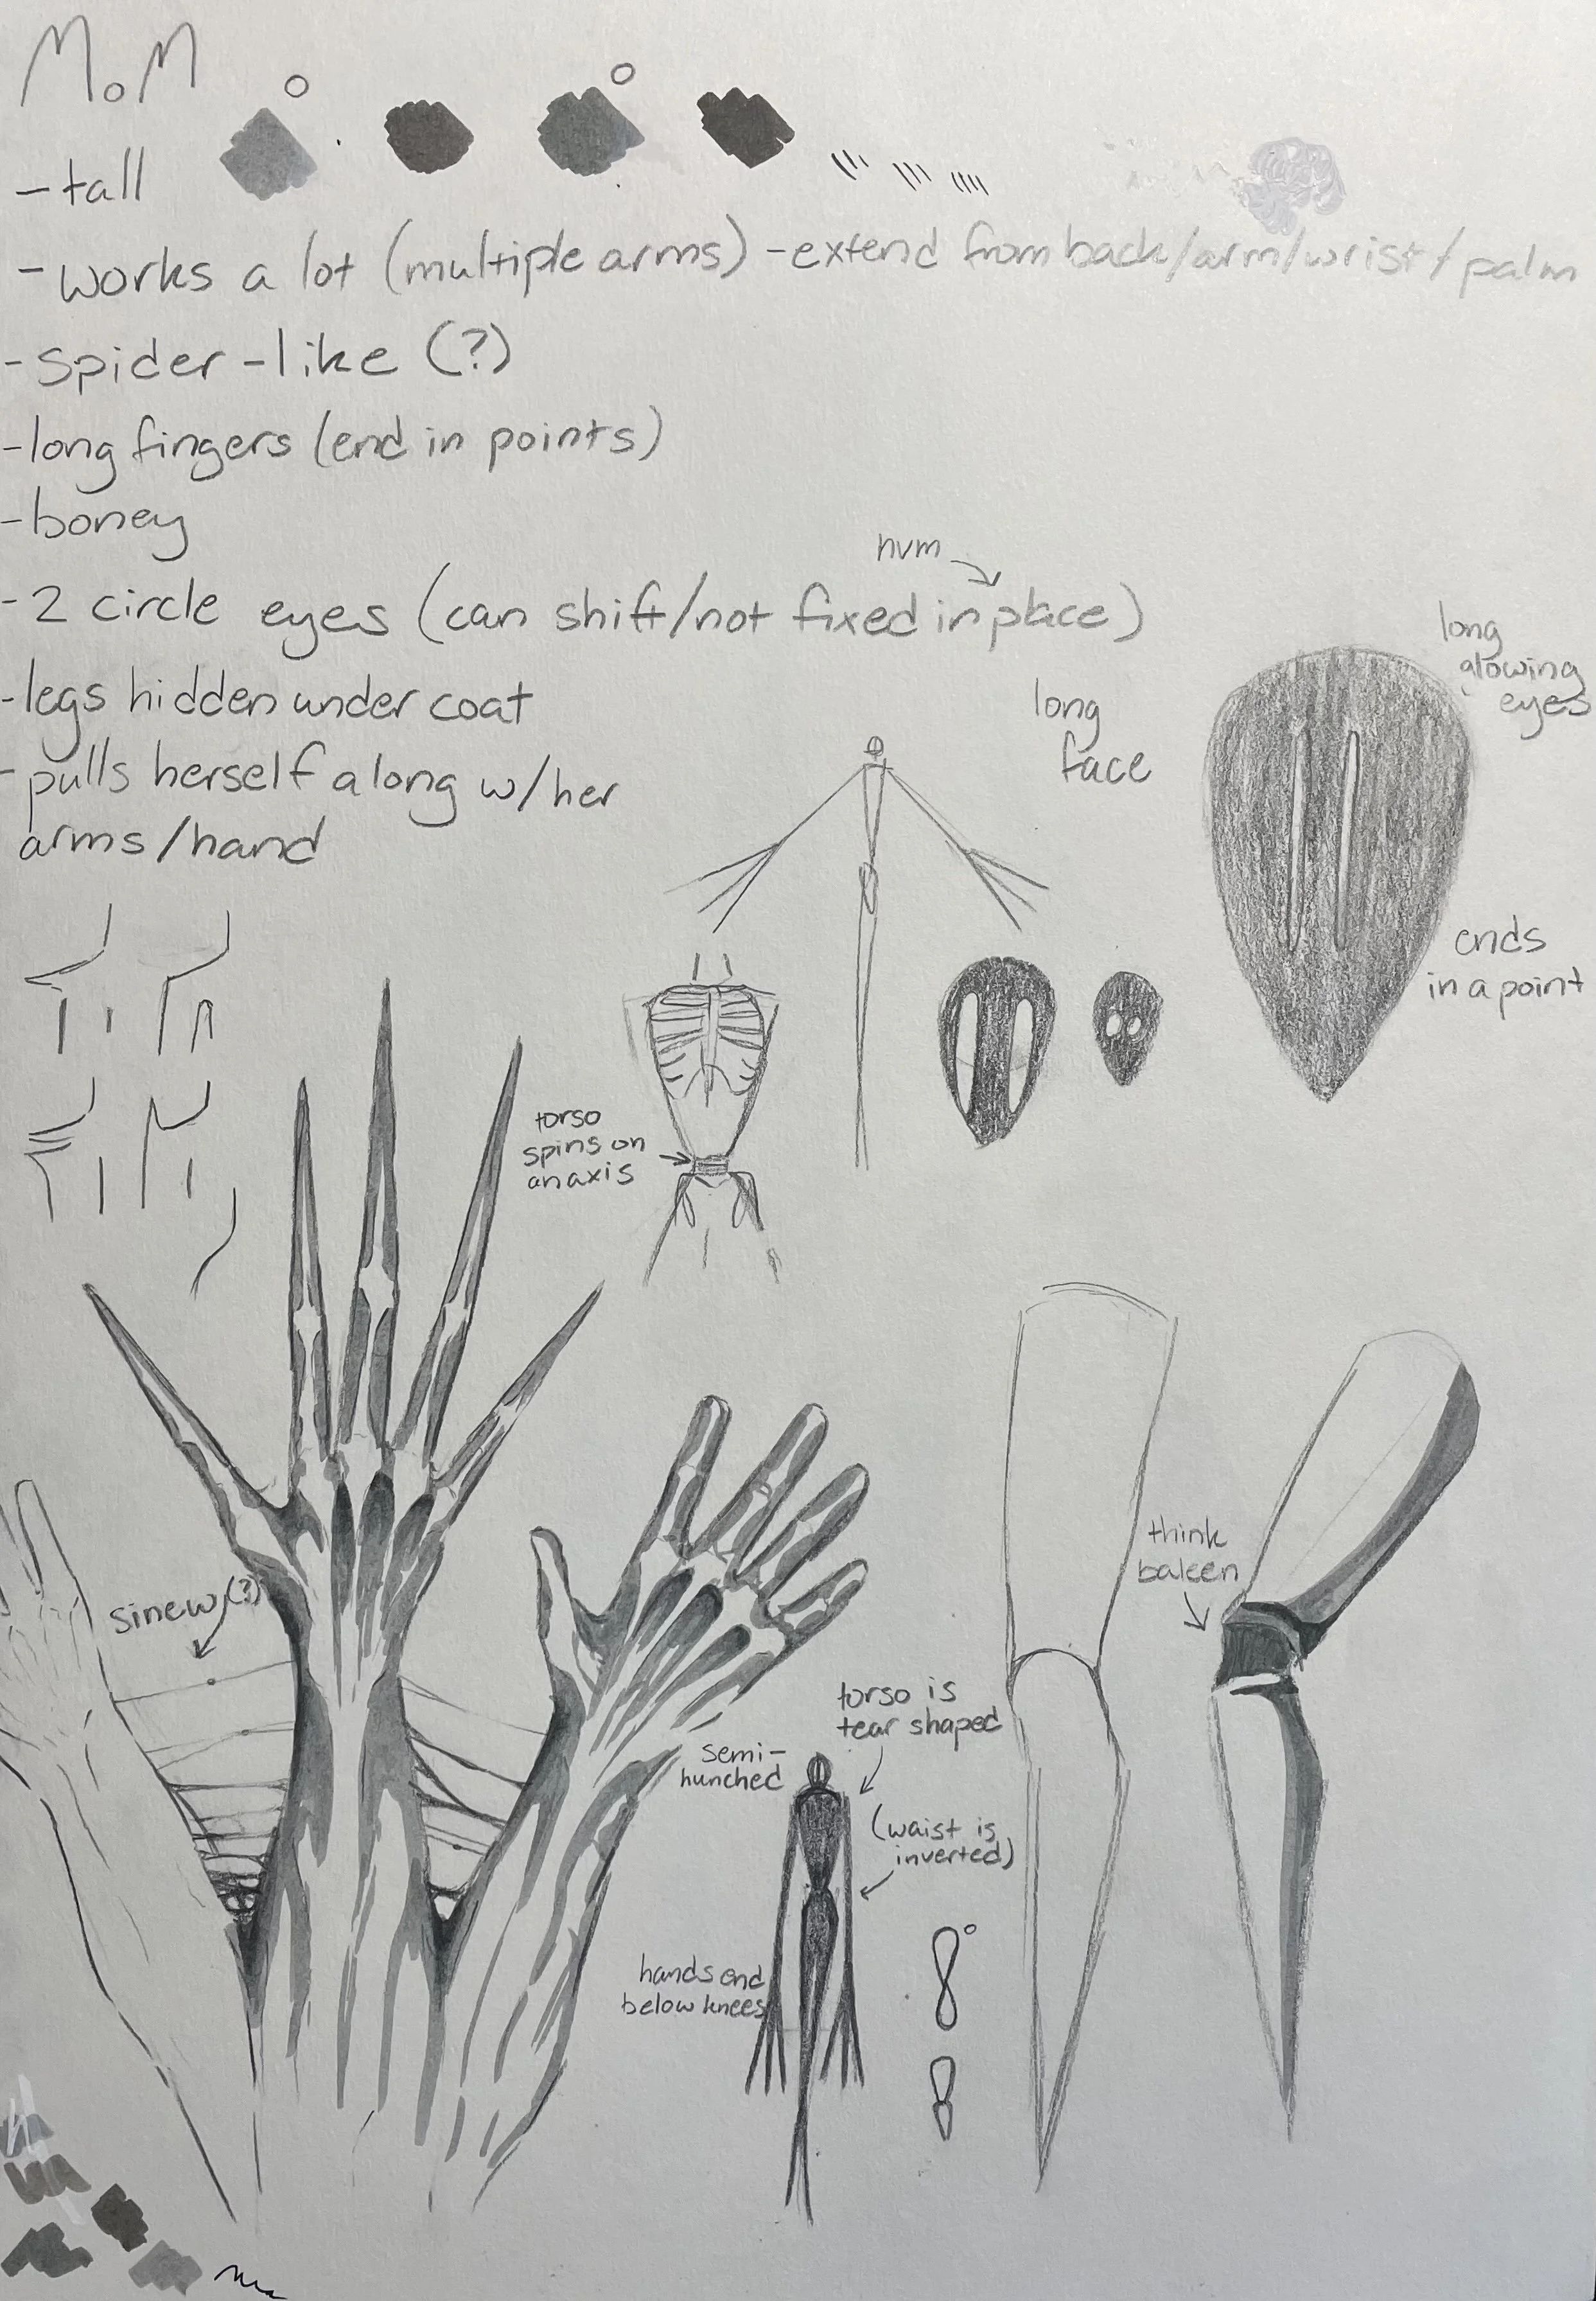 MoM
-tall
-works a lot (multiple arms) -extend from back/arm/wrist/palm
-spider-like (?)
-long fingers (end in points)
-boney
nvm
-2 circle eyes (can shift/not fixed in place)
-legs hidden under coat
-pulls herself along w/her
arms/hand
long
glowing
eyes
long
face
ends
in a point
torso
spins on
an axis
think
baleen
sinew(?)
torso is
tear shaped
semi-
hunched
(waist is
inverted)
hands end
below knees